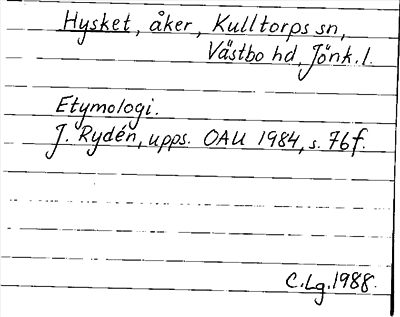 Hysket, åker, Kulltorps sn,
Västbo hd, Jönk.l.
Etymologi.
J. Rydén, upps. OAU 1984, s. 76f.
C.Lg.1988.